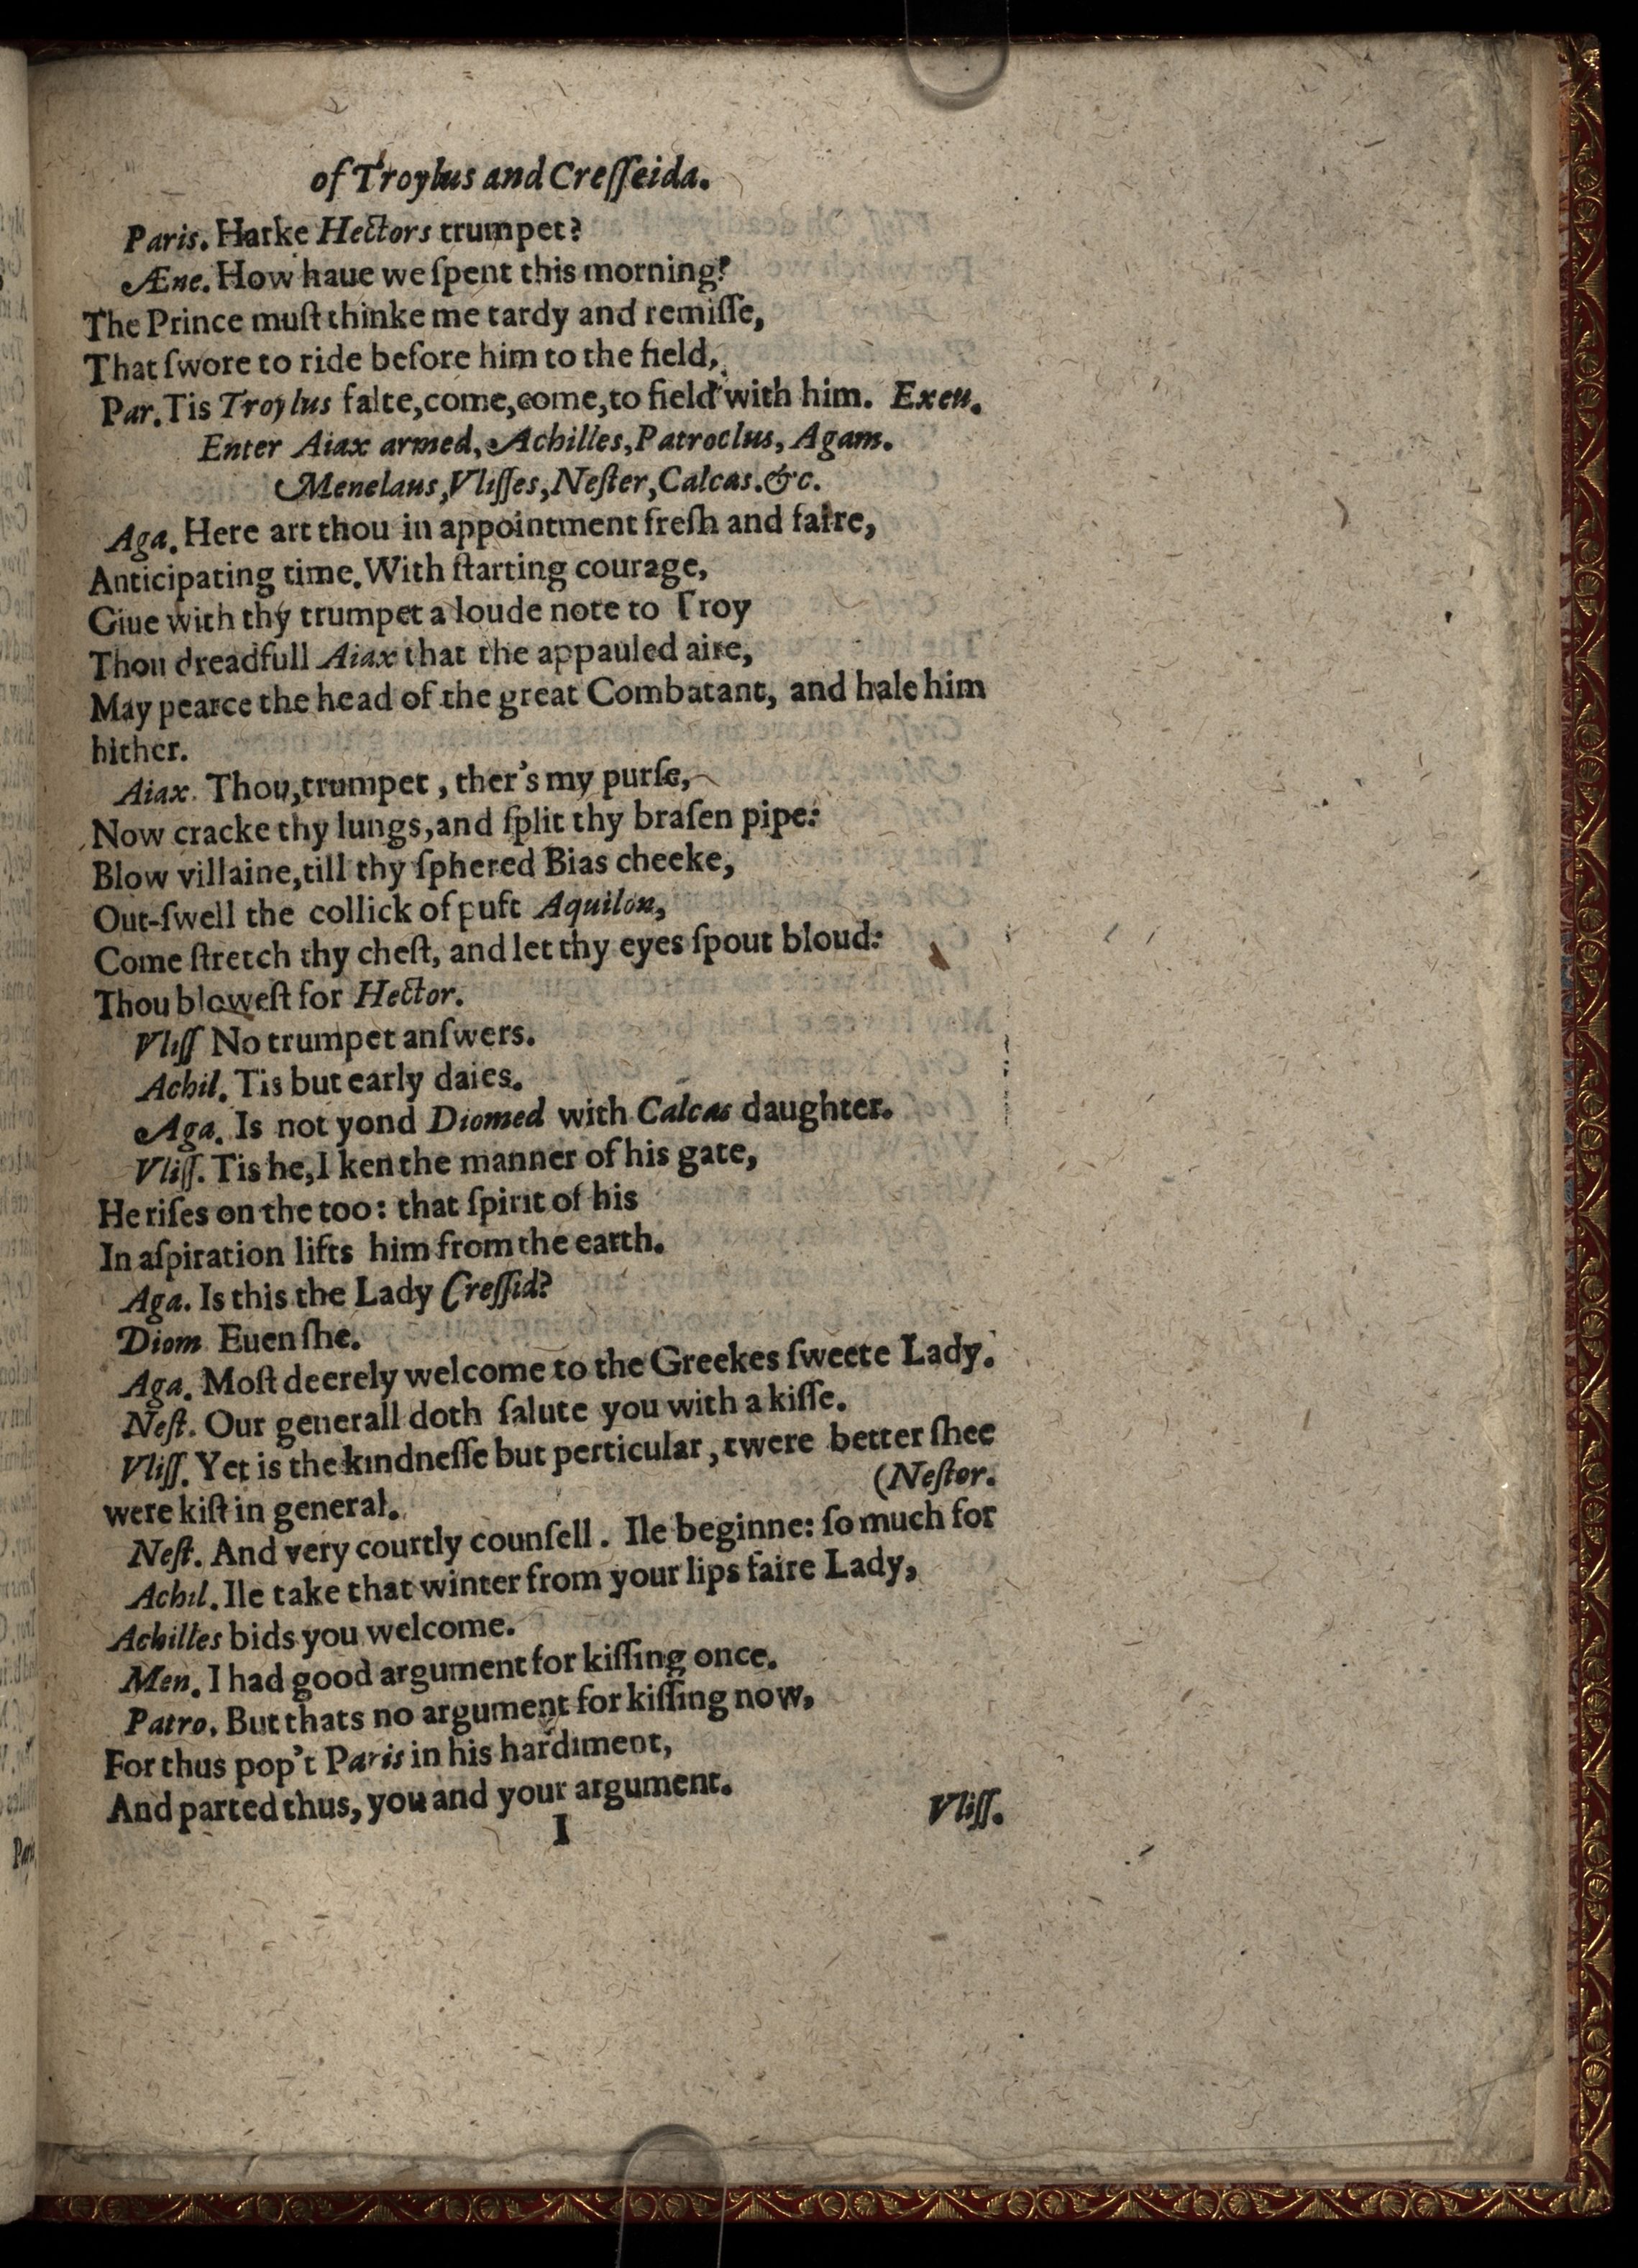 of Troylus and Creſſeida.
Paris. Harke Hectors trumpet?
Æne. How haue we ſpent this morning?
The Prince muſt thinke me tardy and remiſſe,
That ſwore to ride before him to the field,
Par. Tis Troylus falte, come, come, to field with him. Exeu.
Enter Aiax armed, Achilles, Patroclus, Agam.
Menelaus, Vliſſes, Neſter, Calcas. &c.
Aga. Here art thou in appointment freſh and faire,
Anticipating time. With ſtarting courage,
Giue with thy trumpet a loude note to Troy
Thou dreadfull Aiax that the appauled aire,
May pearce the head of the great Combatant, and hale him
hither.
Aiax. Thou, trumpet, ther's my purſe,
Now cracke thy lungs, and ſplit thy braſen pipe:
Blow villaine, till thy ſphered Bias cheeke,
Out-ſwell the collick of puft Aquilon,
Come ſtretch thy cheſt, and let thy eyes ſpout bloud:
Thou bloweſt for Hector.
Vliſſ No trumpet anſwers.
Achil. Tis but early daies.
Aga. Is not yond Diomed with Calcas daughter.
Vliſſ. Tis he, I ken the manner of his gate,
He riſes on the too: that ſpirit of his
In aſpiration lifts him from the earth.
Aga. Is this the Lady Creſſid?
Diom Euen ſhe.
Aga. Moſt deerely welcome to the Greekes ſweete Lady.
Neſt. Our generall doth ſalute you with a kiſſe.
Vliſſ. Yet is the kindneſſe but perticular, twere better ſhee
were kiſt in general.
(Neſtor.
Neſt. And very courtly counſell. Ile beginne: ſo much for
Achil. Ile take that winter from your lips faire Lady,
Achilles bids you welcome.
Men. I had good argument for kiſſing once.
Patro. But thats no argument for kiſſing now,
For thus pop't Paris in his hardiment,
And parted thus, you and your argument.
I
Vliſſ.